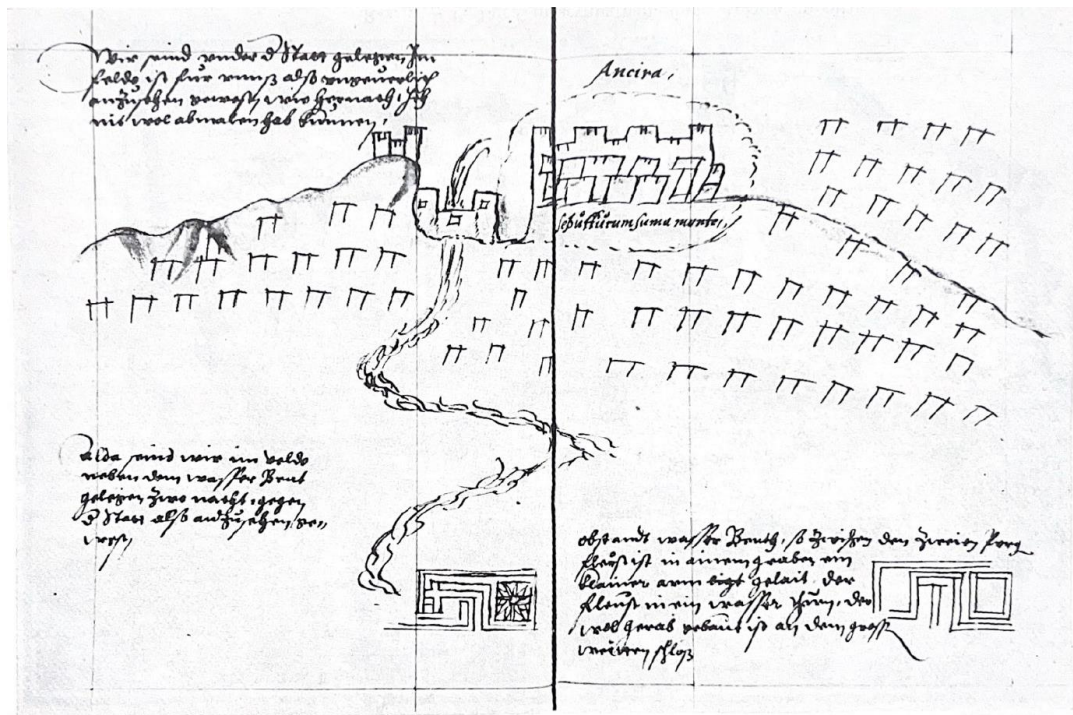 Wir seind under d Statt gelegen Im
feldt ist für unns alß ungeverlich
anzusehen gewest, wie hernach, Ich
nit wol abmalen hab künnen,
Ancira,
sepulturum suma monte,
Alda seind wir im veldt
neben dem wasser Bent
gelegen zwo nacht, gegen
d Statt alß anzusehen ge„
west
obstandt wasser Benth, so zwischen den zweien Perg
fleust ist in ainem graben ein
klainer arm ligt gelait, der
fleust in ein wasser thurn, der
wol herab gebaut ist an dem gross
weitten schloß